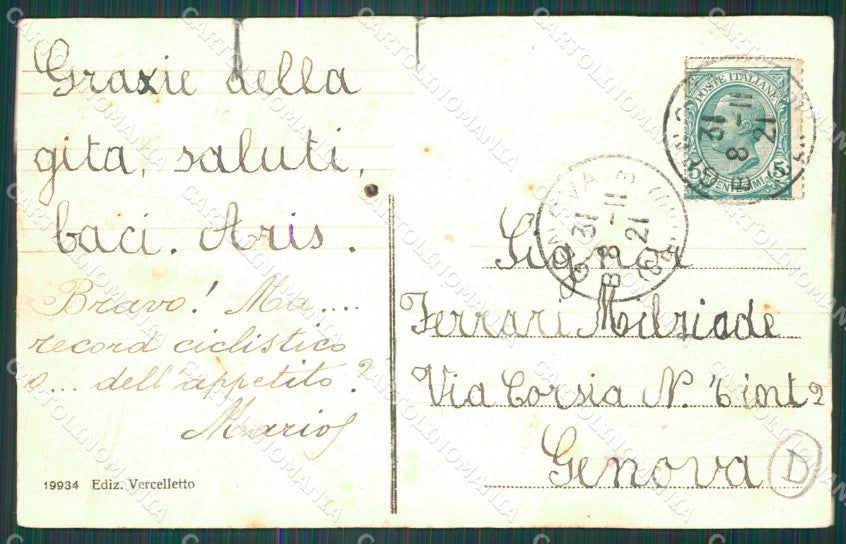 Grazie della
gita, saluti,
baci. Aris.
Bravo! Ma....
record ciclistico
o... dell'appetito?
Mario
19934 Ediz. Vercelletto
POSTE ITALIANE
5 CENTESIMI 5
21
8-11
21
GENOVA
31
8-11
21
Signor
Ferrari Milziade
Via Corsia N. 6 int 2
Genova
D
CARTOLINOMANIA